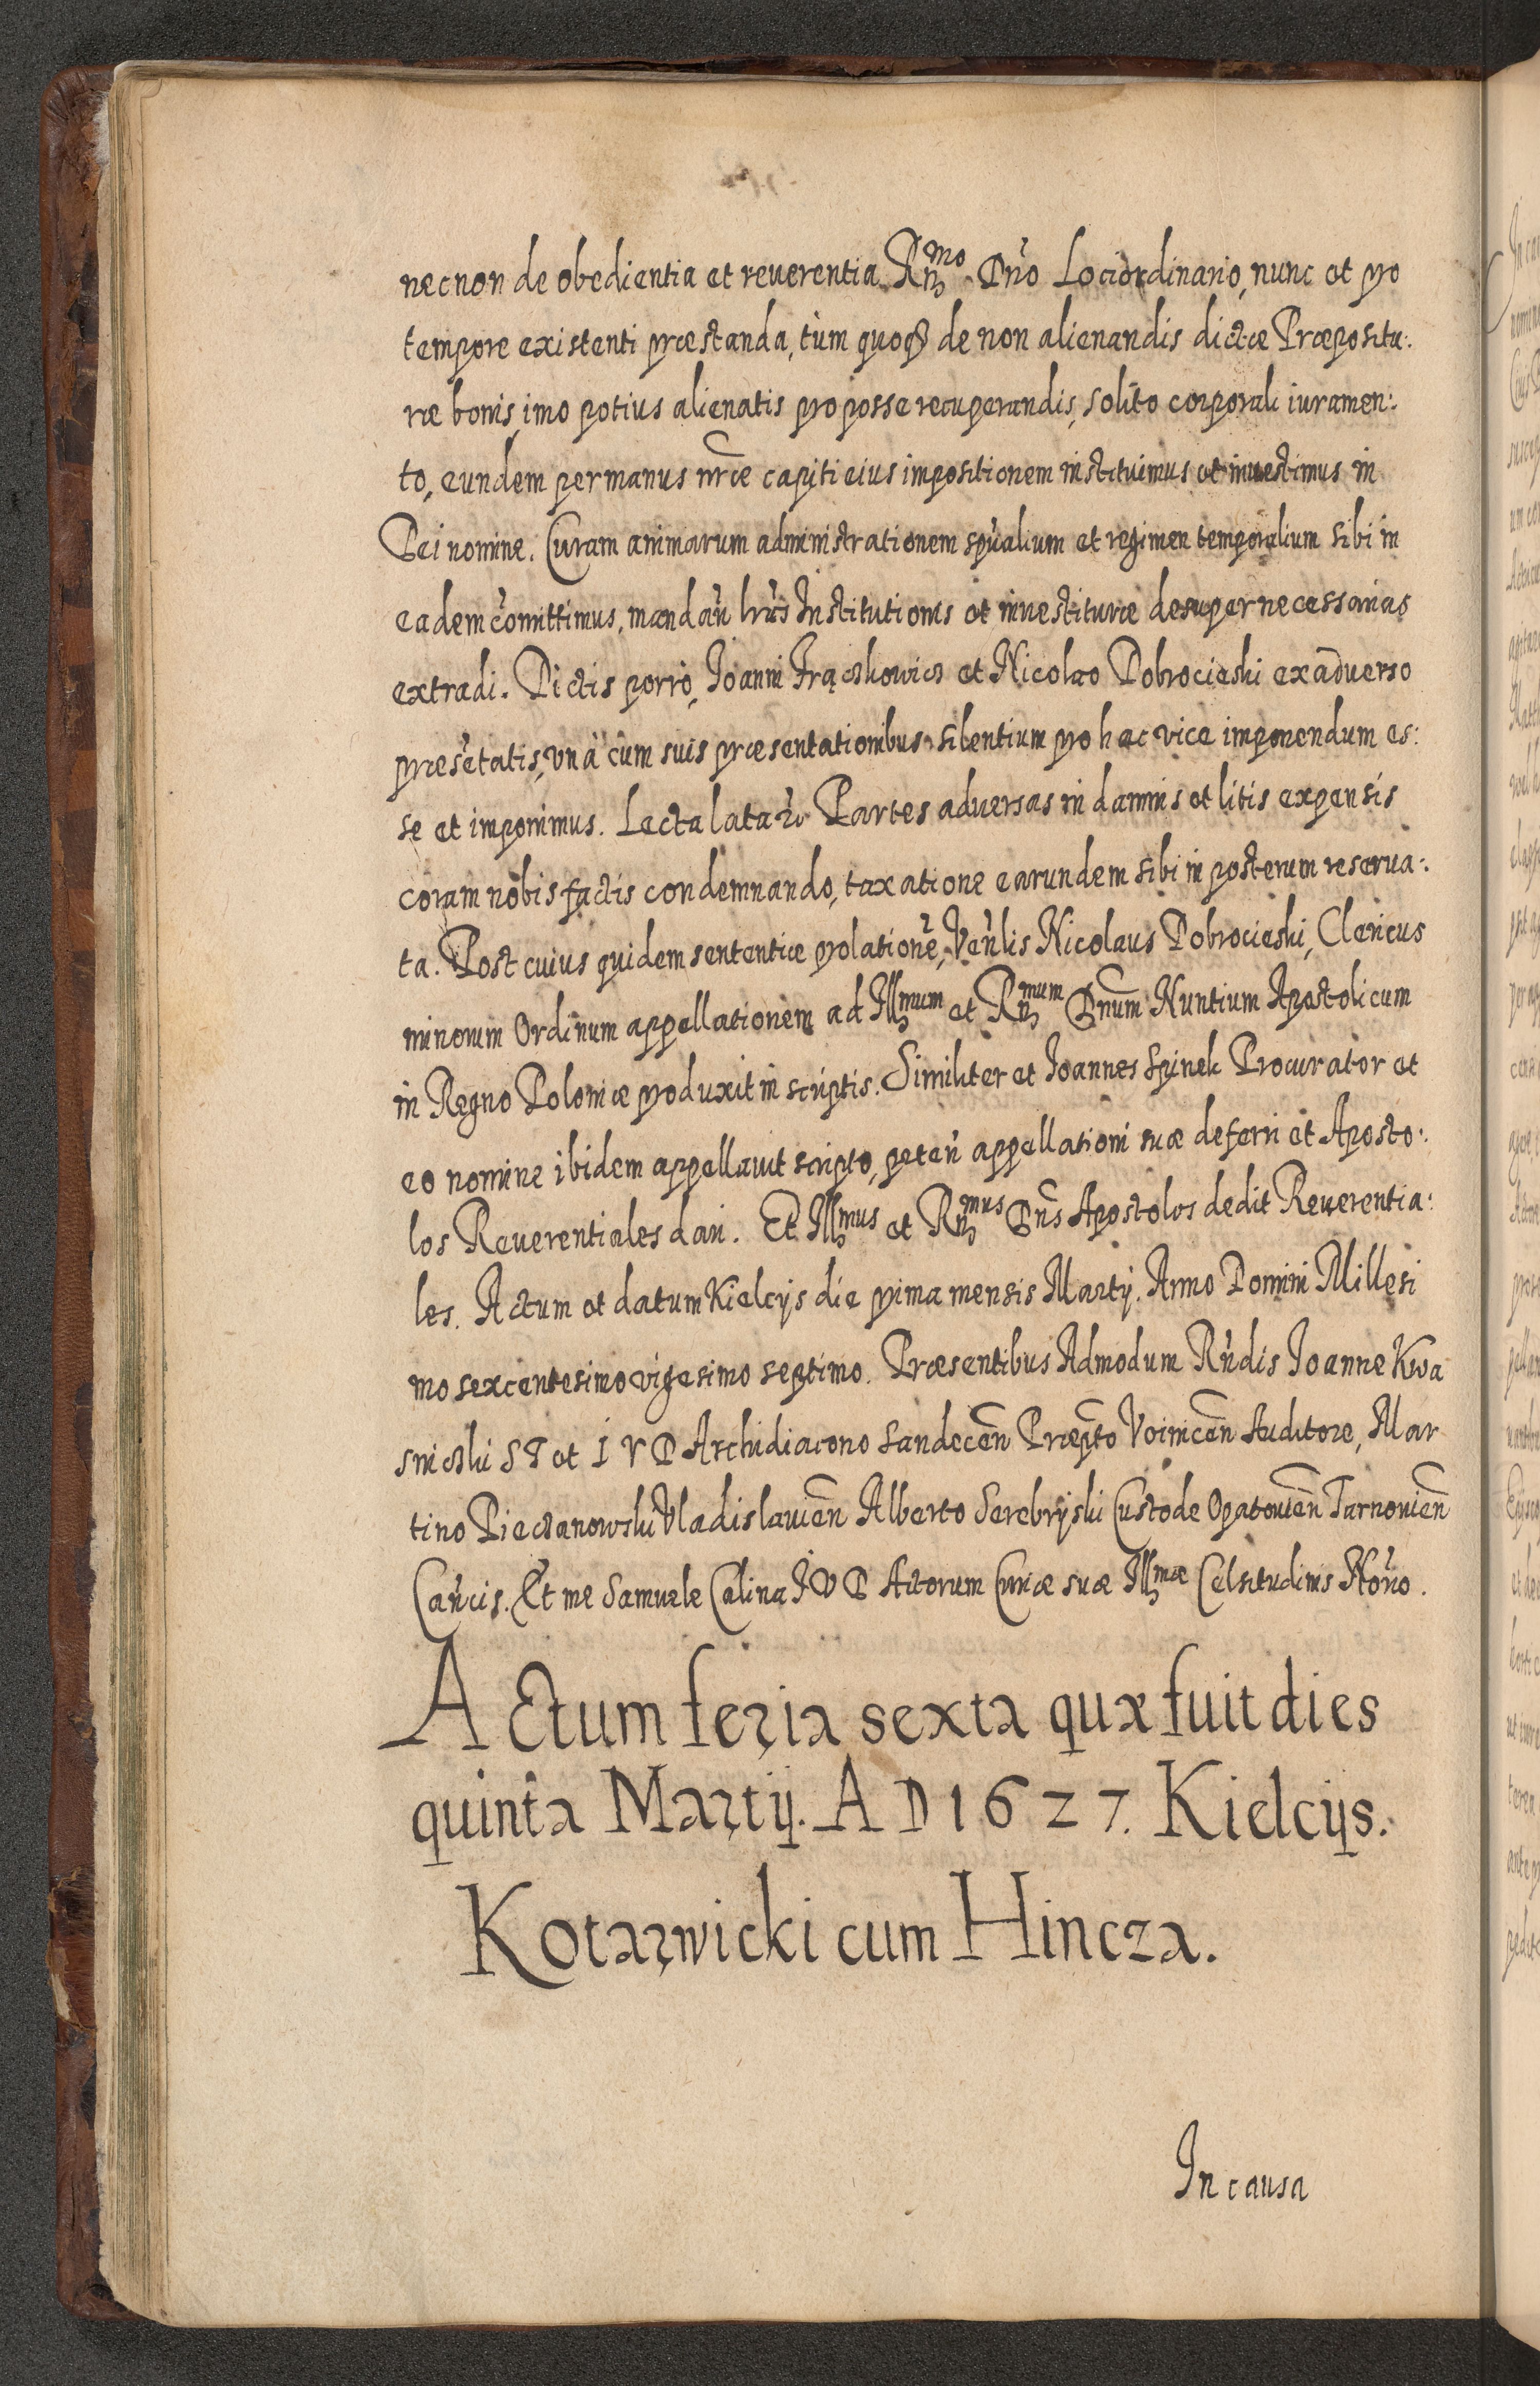 necnon de obedientia et reuerentia Rn̄mo Dn̄o Lociordinario, nunc et pro
tempore existenti præstanda, tùm quoq₃ de non alienandis dictæ Præpositu:
ræ bonis, imo potius alienatis pro posse recuperandis, solito corporali iuramen:
to, eundem per manus nr̄æ capiti eius impositionem instituimus et inuestimus in
Dei nomine. Curam animarum administrationem spūalium et regimen temporalium sibi in
eadem com̄ittimus, mandan̄ lrās Institutionis et inuestituræ desuper necessarias
extradi. Dictis porrò, Joanni Frąckowicz et Nicolao Dobrocieski ex aduerso
præsētatis, vnà cum suis præsentationibus silentium pro hac vice imponendum es:
se et imponimus. Lecta lata Partes aduersas in damnis et litis expensis
coram nobis factis condemnando, taxatione earundem sibi in posterum reserua:
ta. Post cuius quidem sententiæ prolationē, Ven̄lis Nicolaus Dobrocieski, Clericus
minorum Ordinum appellationem ad Illmum et Rn̄mum Dnūm Nuntium Apostolicum
in Regno Poloniæ produxit in scriptis. Similiter et Joannes Spinek Procurator et
eo nomine ibidem appellauit scripto, peten̄ appellationi suæ deferri et Aposto:
los Reuerentiales dari. Et Illmus et Rn̄mus Dn̄s Apostolos dedit Reuerentia:
les. Actum et datum Kielcijs die prima mensis Martij. Anno Domini Millesi
mo sexcentesimo vigesimo septimo. Præsentibus Admodum Rn̄dis Joanne Kwa
snicski S T et I V D Archidiacono Sandecen̄ Præpto Voinicen̄ Auditore, Mar
tino Pieczanowski Vladislauien̄ Alberto Serebrijski Custode Opatouien̄ Tarnouien̄
Can̄cis. Et me Samuele Calina I V D Actorum Curiæ suæ Illmæ Celsitudinis Nōrio.
Actum feria sexta quæ fuit dies
quinta Martij. A D 1627. Kielcijs.
Kotarwicki cum Hincza.
In causa